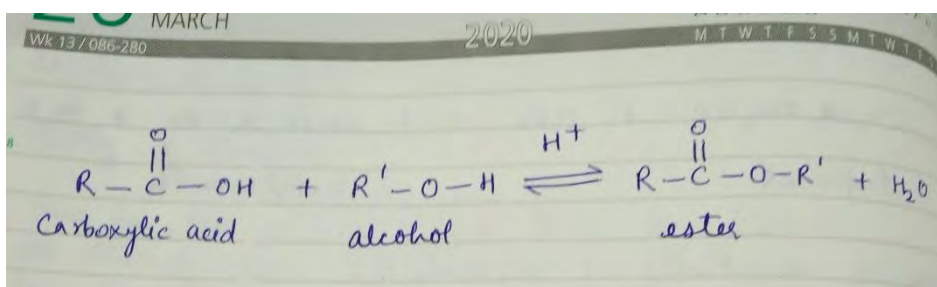 MARCH
Wk 13 / 086-280
2020
M T W T F S S M T W T
8
O
||
R - C - OH + R' - O - H ⇌ H+ R - C - O - R' + H₂O
O
||
Carboxylic acid alcohol ester